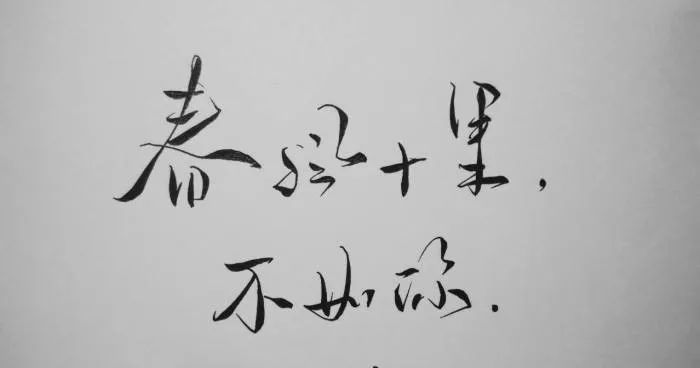 春风十里,
不如你.